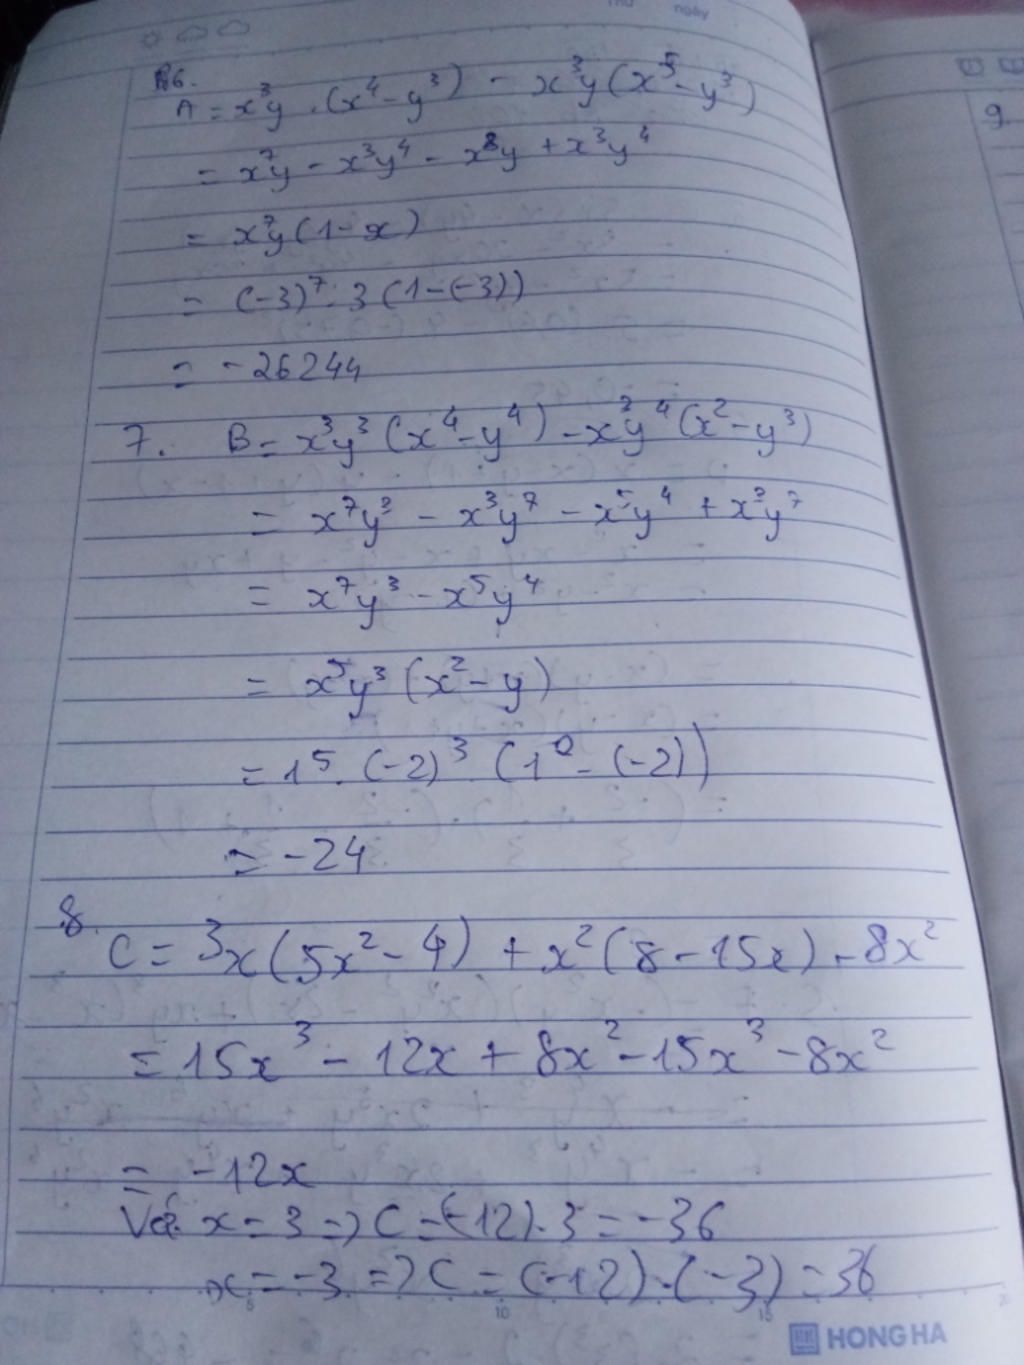 B6.
A = x³y . (x⁴ - y³) - x³y (x⁵ - y³)
= x⁷y - x³y⁴ - x⁸y + x³y⁴
= x⁷y (1 - x)
= (-3)⁷ . 3 (1 - (-3))
= -26244
7. B = x³y³ (x⁴ - y⁴) - x³y⁴ (x² - y³)
= x⁷y³ - x³y⁷ - x⁵y⁴ + x³y⁷
= x⁷y³ - x⁵y⁴
= x⁵y³ (x² - y)
= 1⁵ . (-2)³ (1² - (-2))
= -24
8.
C = 3x (5x² - 4) + x² (8 - 15x) - 8x²
= 15x³ - 12x + 8x² - 15x³ - 8x²
= -12x
Với x = 3 => C = (-12) . 3 = -36
x = -3 => C = (-12) . (-3) = 36
5 10 15
HONG HA
ngày
9